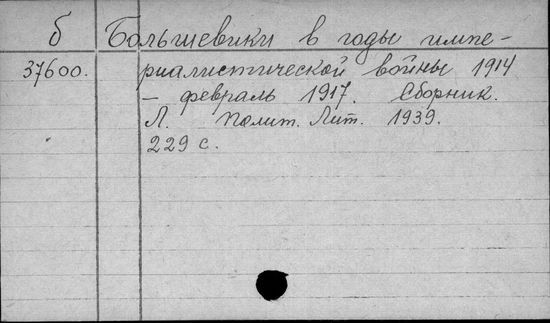 Б Большевики в годы импе-
37600. риалистической войны 1914
– февраль 1917. Сборник.
Л. Полит. Лит. 1939.
229 с.